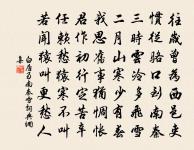 往歲曾為西邑吏
慣從駱口到南秦
三時雲冷多飛雪
二月山寒少有春
我思舊事猶惆悵
君作初行定苦辛
仍賴愁猿寒不叫
若聞猿叫更愁人
白居易南秦雪